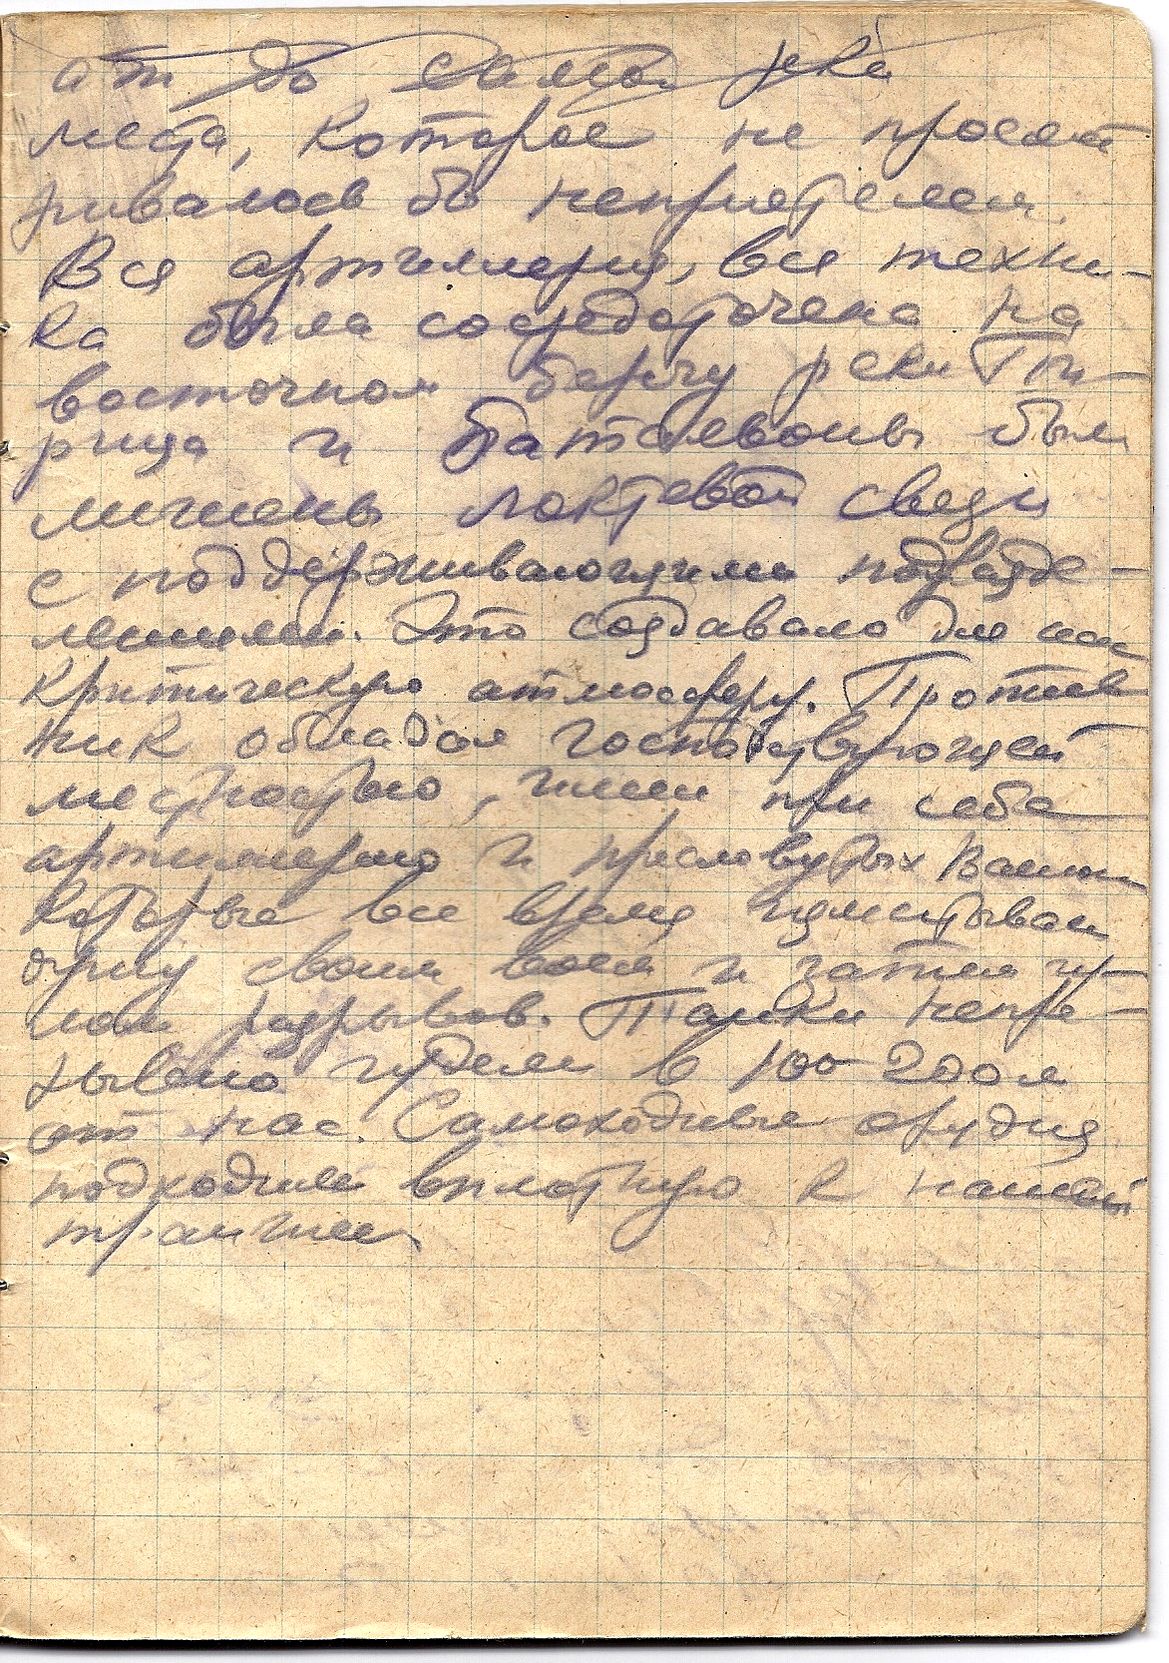 от до самой реки
места, которое не просмат
ривалось бы неприятелем.
Вся артиллерия, вся техни-
ка была сосредоточена на
восточном берегу реки
и батальоны были
лишены локтевой связи
с поддерживающими подразде-
лениями. Это создавало для нас
критическую атмосферу. Против
ник обладал господствующей
местностью, имел при себе
артиллерию и пресловутых
которые все время выматывали
душу своим воем и затем гу-
лом разрывов. Танки непре-
рывно гудели в 100-200 м
от нас. Самоходные орудия
подходили вплотную к нашей
траншеи